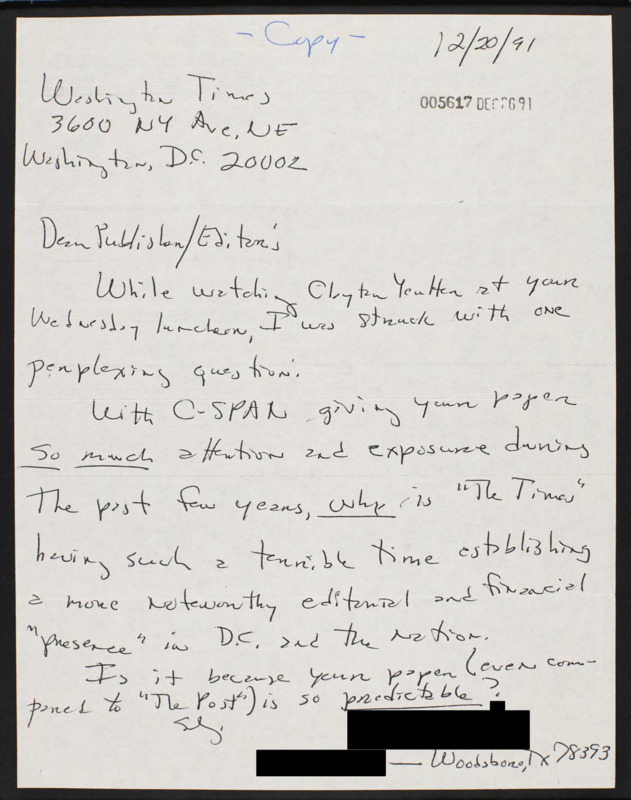 - Copy -
12/20/91
Washington Times
005617 DEC 26 91
3600 NY Ave, NE
Washington, D.C. 20002
Dear Publisher/Editor's
While watching Clayton Yeutter at your
Wednesday luncheon, I was struck with one
perplexing question:
With C-SPAN giving your paper
so much attention and exposure during
the past few years, why is "The Times"
having such a terrible time establishing
a more noteworthy editorial and financial
"presence" in D.C. and the nation.
Is it because your paper (even com-
pared to "The Post") is so predictable?
Sly,
— Woodsboro, TX 78393